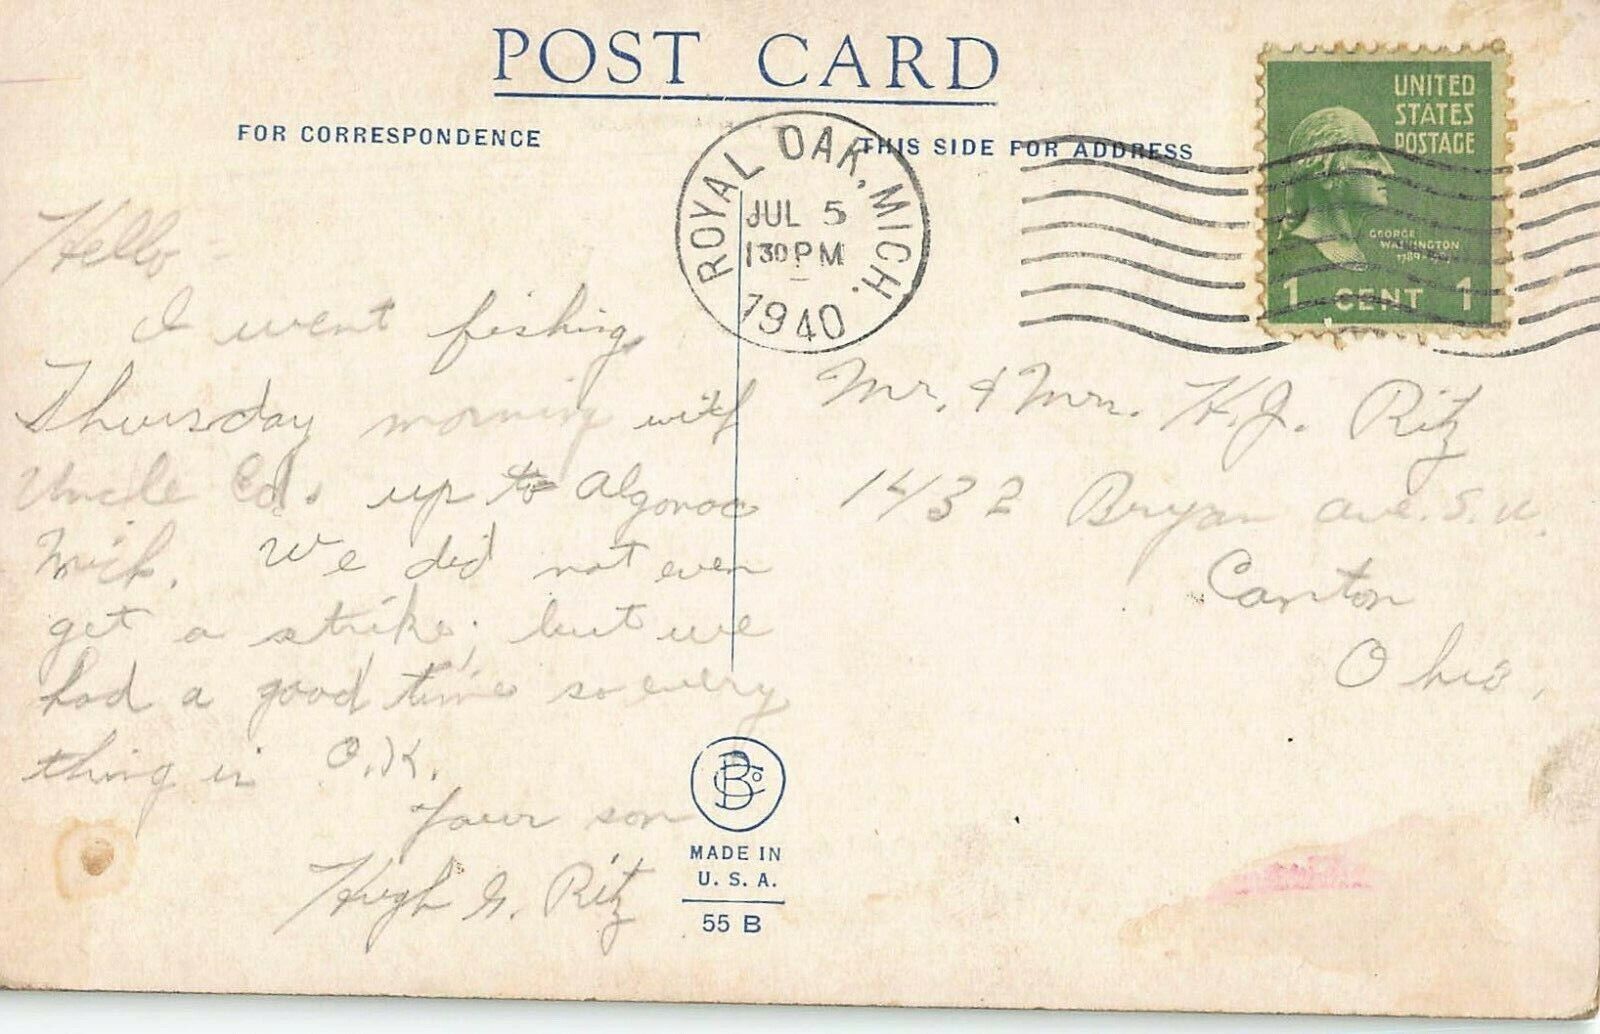 POST CARD
FOR CORRESPONDENCE
THIS SIDE FOR ADDRESS
ROYAL OAK, MICH.
JUL 5
130 PM
1940
UNITED
STATES
POSTAGE
GEORGE
WASHINGTON
1 CENT 1
Hello -
I went fishing
Thursday morning with
Uncle Ed. up to Algonac
Mich. We did not even
get a strike, but we
had a good time so every
thing is O.K.
Your son
Hugh G. Ritz
Mr. & Mrs. H.J. Ritz
1432 Bryan ave. S.W.
Canton
Ohio,
MADE IN
U. S. A.
55 B